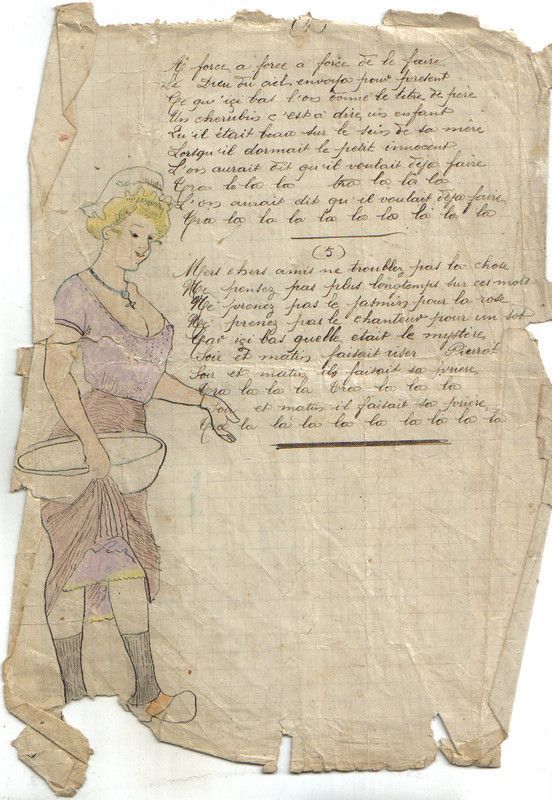 (4)
A force a force a force de le faire
Le Dieu du ciel envoya pour présent
Ce qu'içi bas l'on donne le titre de père
Un chérubin c'est a dire un enfant
Qu'il était beau sur le sein de sa mère
Lorsqu'il dormait le petit innocent
L'on aurait dit qu'il voulait déja faire
Tra la la la tra la la la
L'on aurait dit qu'il voulait déja faire
Tra la la la la la la la la la
(5)
Mers chers amis ne troublez pas la chose
Ne pensez pas plus longtemps sur ces mots
Ne prenez pas le jasmin pour la rose
Ne prenez pas le chanteur pour un sot
Car içi bas quelle etait le mystère
Soir et matin faisait user Pierrot
Soir et matin ils faisait sa prière
Tra la la la Tra la la la
Soir et matin il faisait sa prière
Tra la la la la la la la la la